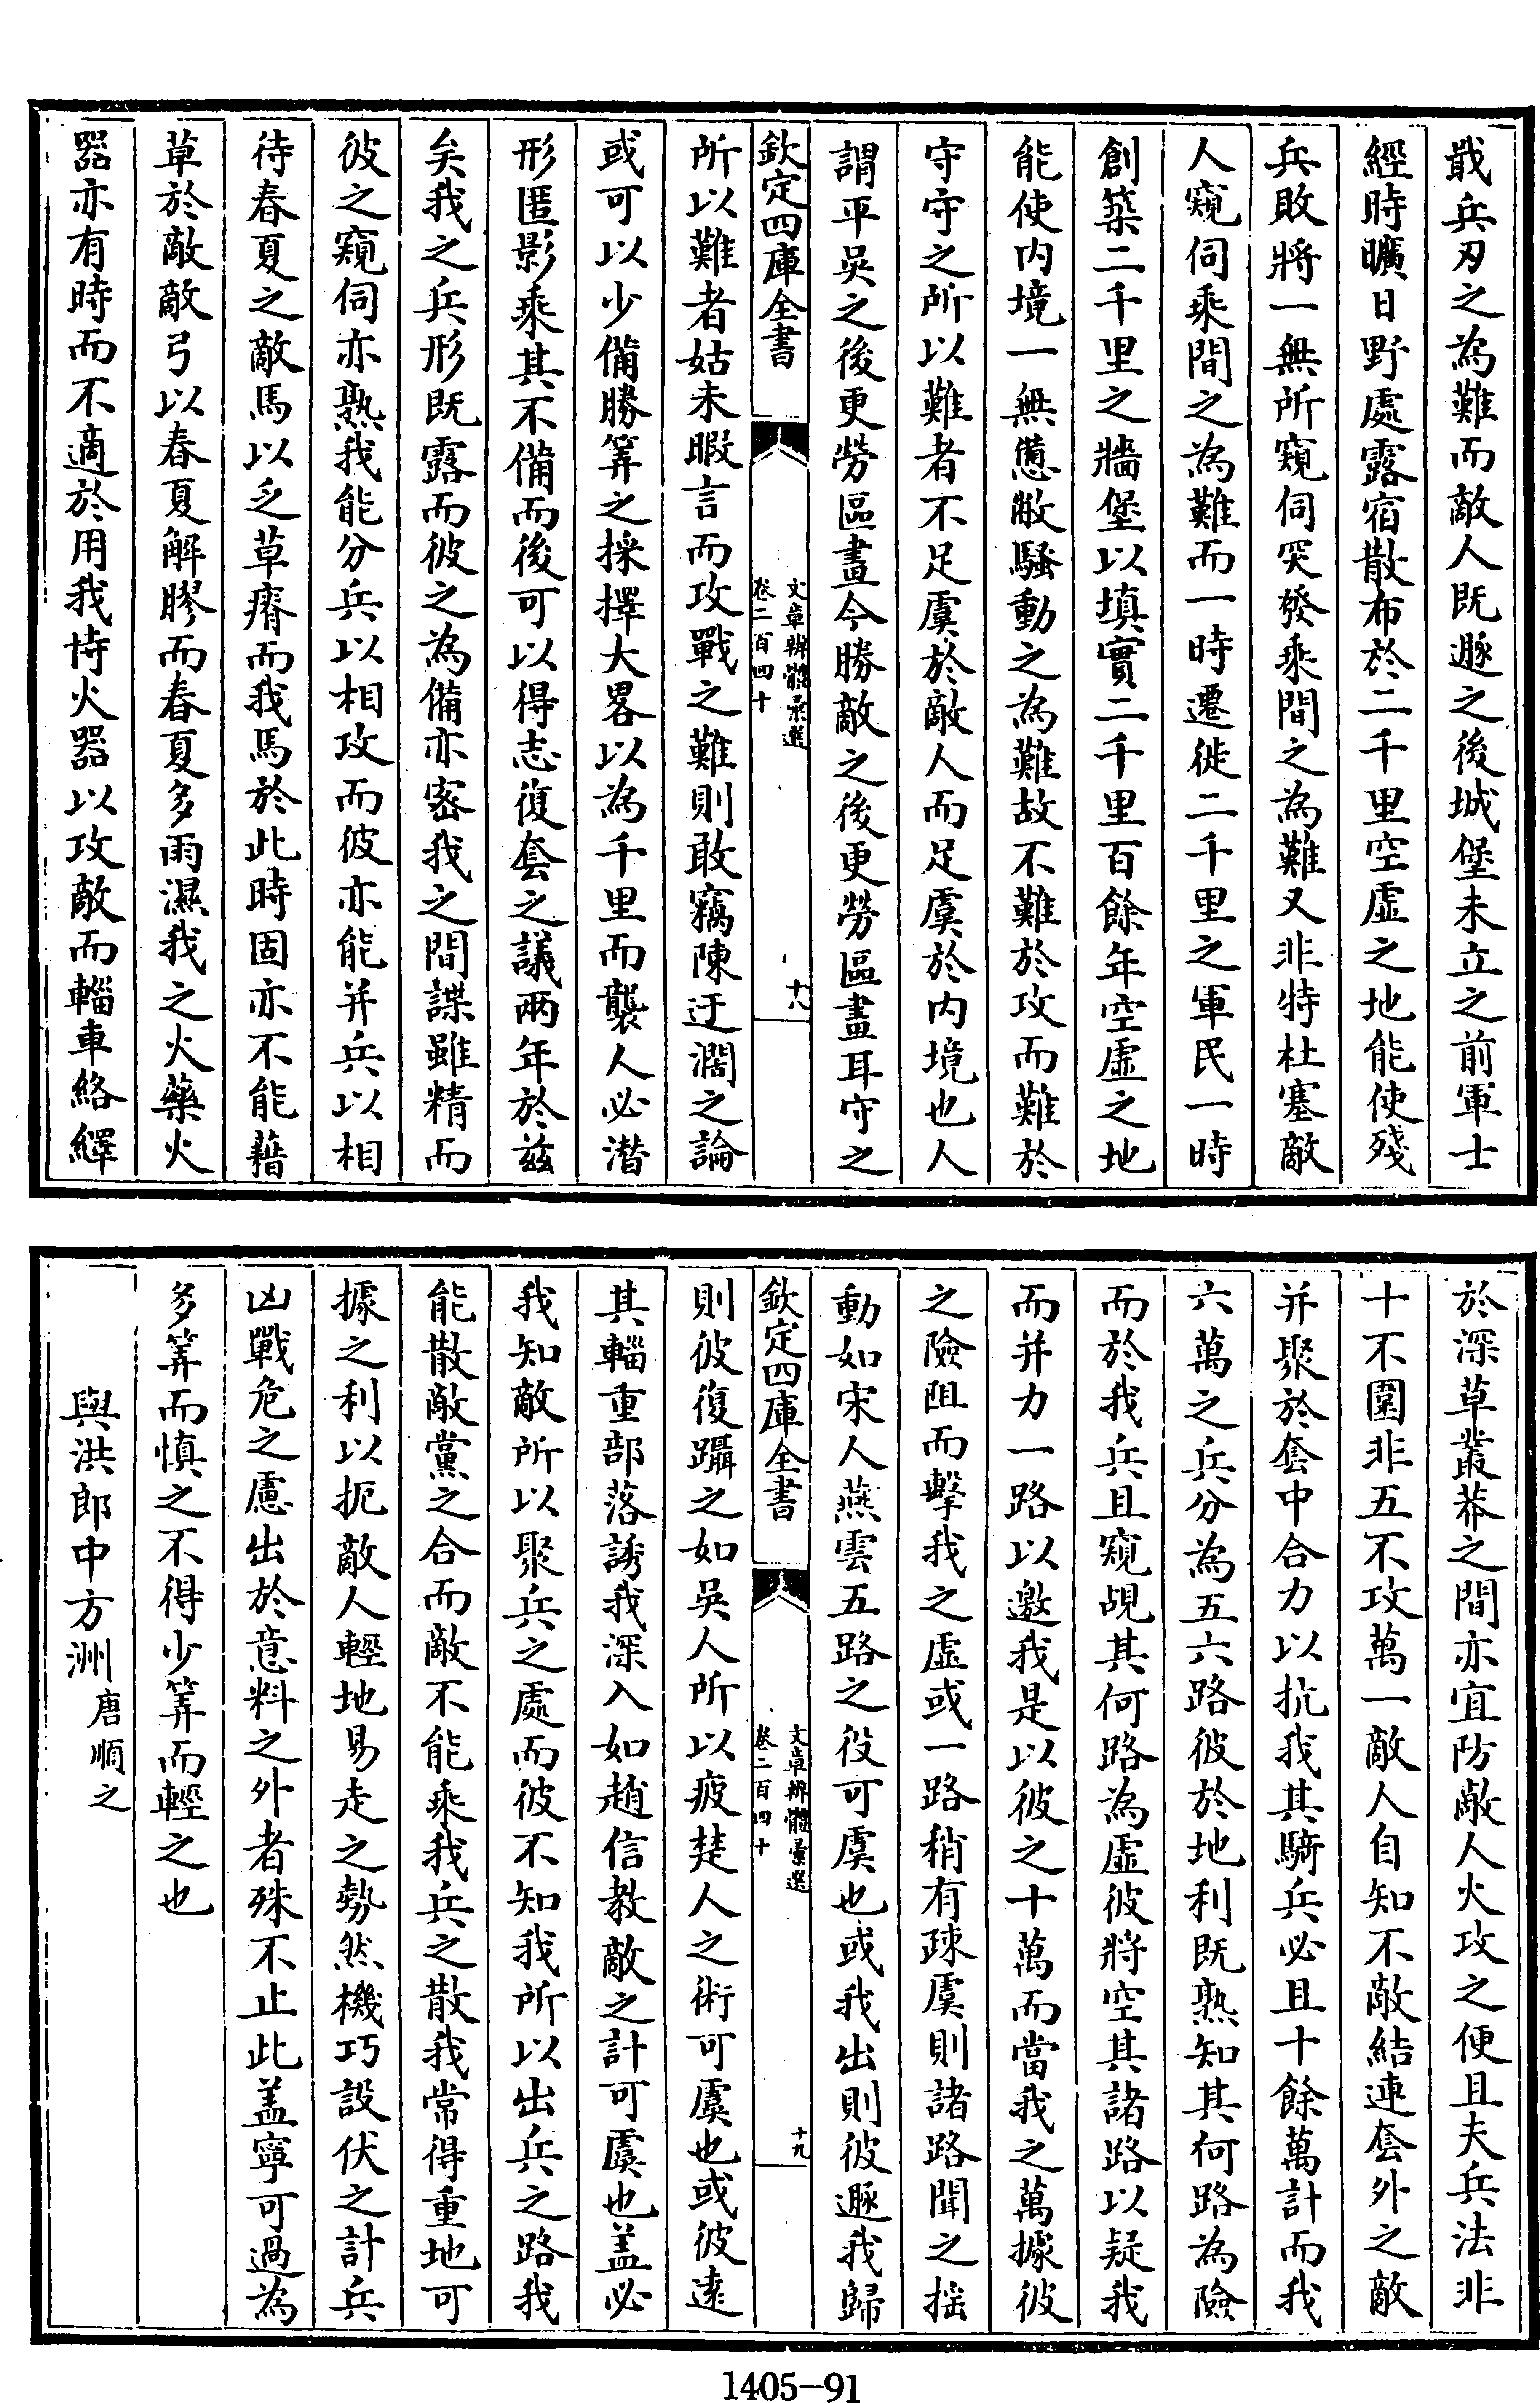 戢兵刃之為難而敵人既遯之後城堡未立之前軍士
經時曠日野處露宿散布於二千里空虛之地能使殘
兵敗將一無所窺伺突發乘間之為難又非特杜塞敵
人窺伺乘間之為難而一時遷徙二千里之軍民一時
創築二千里之牆堡以填實二千里百餘年空虛之地
能使内境一無憊敝騷動之為難故不難於攻而難於
守守之所以難者不足虞於敵人而足虞於内境也人
謂平吳之後更勞區畫今勝敵之後更勞區畫耳守之
欽定四庫全書
文章辨體彙選
卷二百四十
十八
所以難者姑未暇言而攻戰之難則敢竊陳迂濶之論
或可以少備勝筭之採擇大畧以為千里而襲人必潛
形匿影乘其不備而後可以得志復套之議兩年於兹
矣我之兵形既露而彼之為備亦密我之間諜雖精而
彼之窺伺亦熟我能分兵以相攻而彼亦能并兵以相
待春夏之敵馬以乏草瘠而我馬於此時固亦不能藉
草於敵敵弓以春夏解膠而春夏多雨濕我之火藥火
器亦有時而不適於用我恃火器以攻敵而輜車絡繹
於深草叢莽之間亦宜防敵人火攻之便且夫兵法非
十不圍非五不攻萬一敵人自知不敵結連套外之敵
并聚於套中合力以抗我其騎兵必且十餘萬計而我
六萬之兵分為五六路彼於地利既熟知其何路為險
而於我兵且窺覘其何路為虛彼將空其諸路以疑我
而并力一路以邀我是以彼之十萬而當我之萬據彼
之險阻而擊我之虛或一路稍有疎虞則諸路聞之揺
動如宋人燕雲五路之役可虞也或我出則彼遯我歸
欽定四庫全書
文章辨體彙選
卷二百四十
十九
則彼復躡之如吳人所以疲楚人之術可虞也或彼逺
其輜重部落誘我深入如趙信教敵之計可虞也盖必
我知敵所以聚兵之處而彼不知我所以出兵之路我
能散敵黨之合而敵不能乘我兵之散我常得重地可
據之利以扼敵人輕地易走之勢然機巧設伏之計兵
凶戰危之慮出於意料之外者殊不止此盖寧可過為
多筭而慎之不得少筭而輕之也
與洪郎中方洲唐順之
1405-91